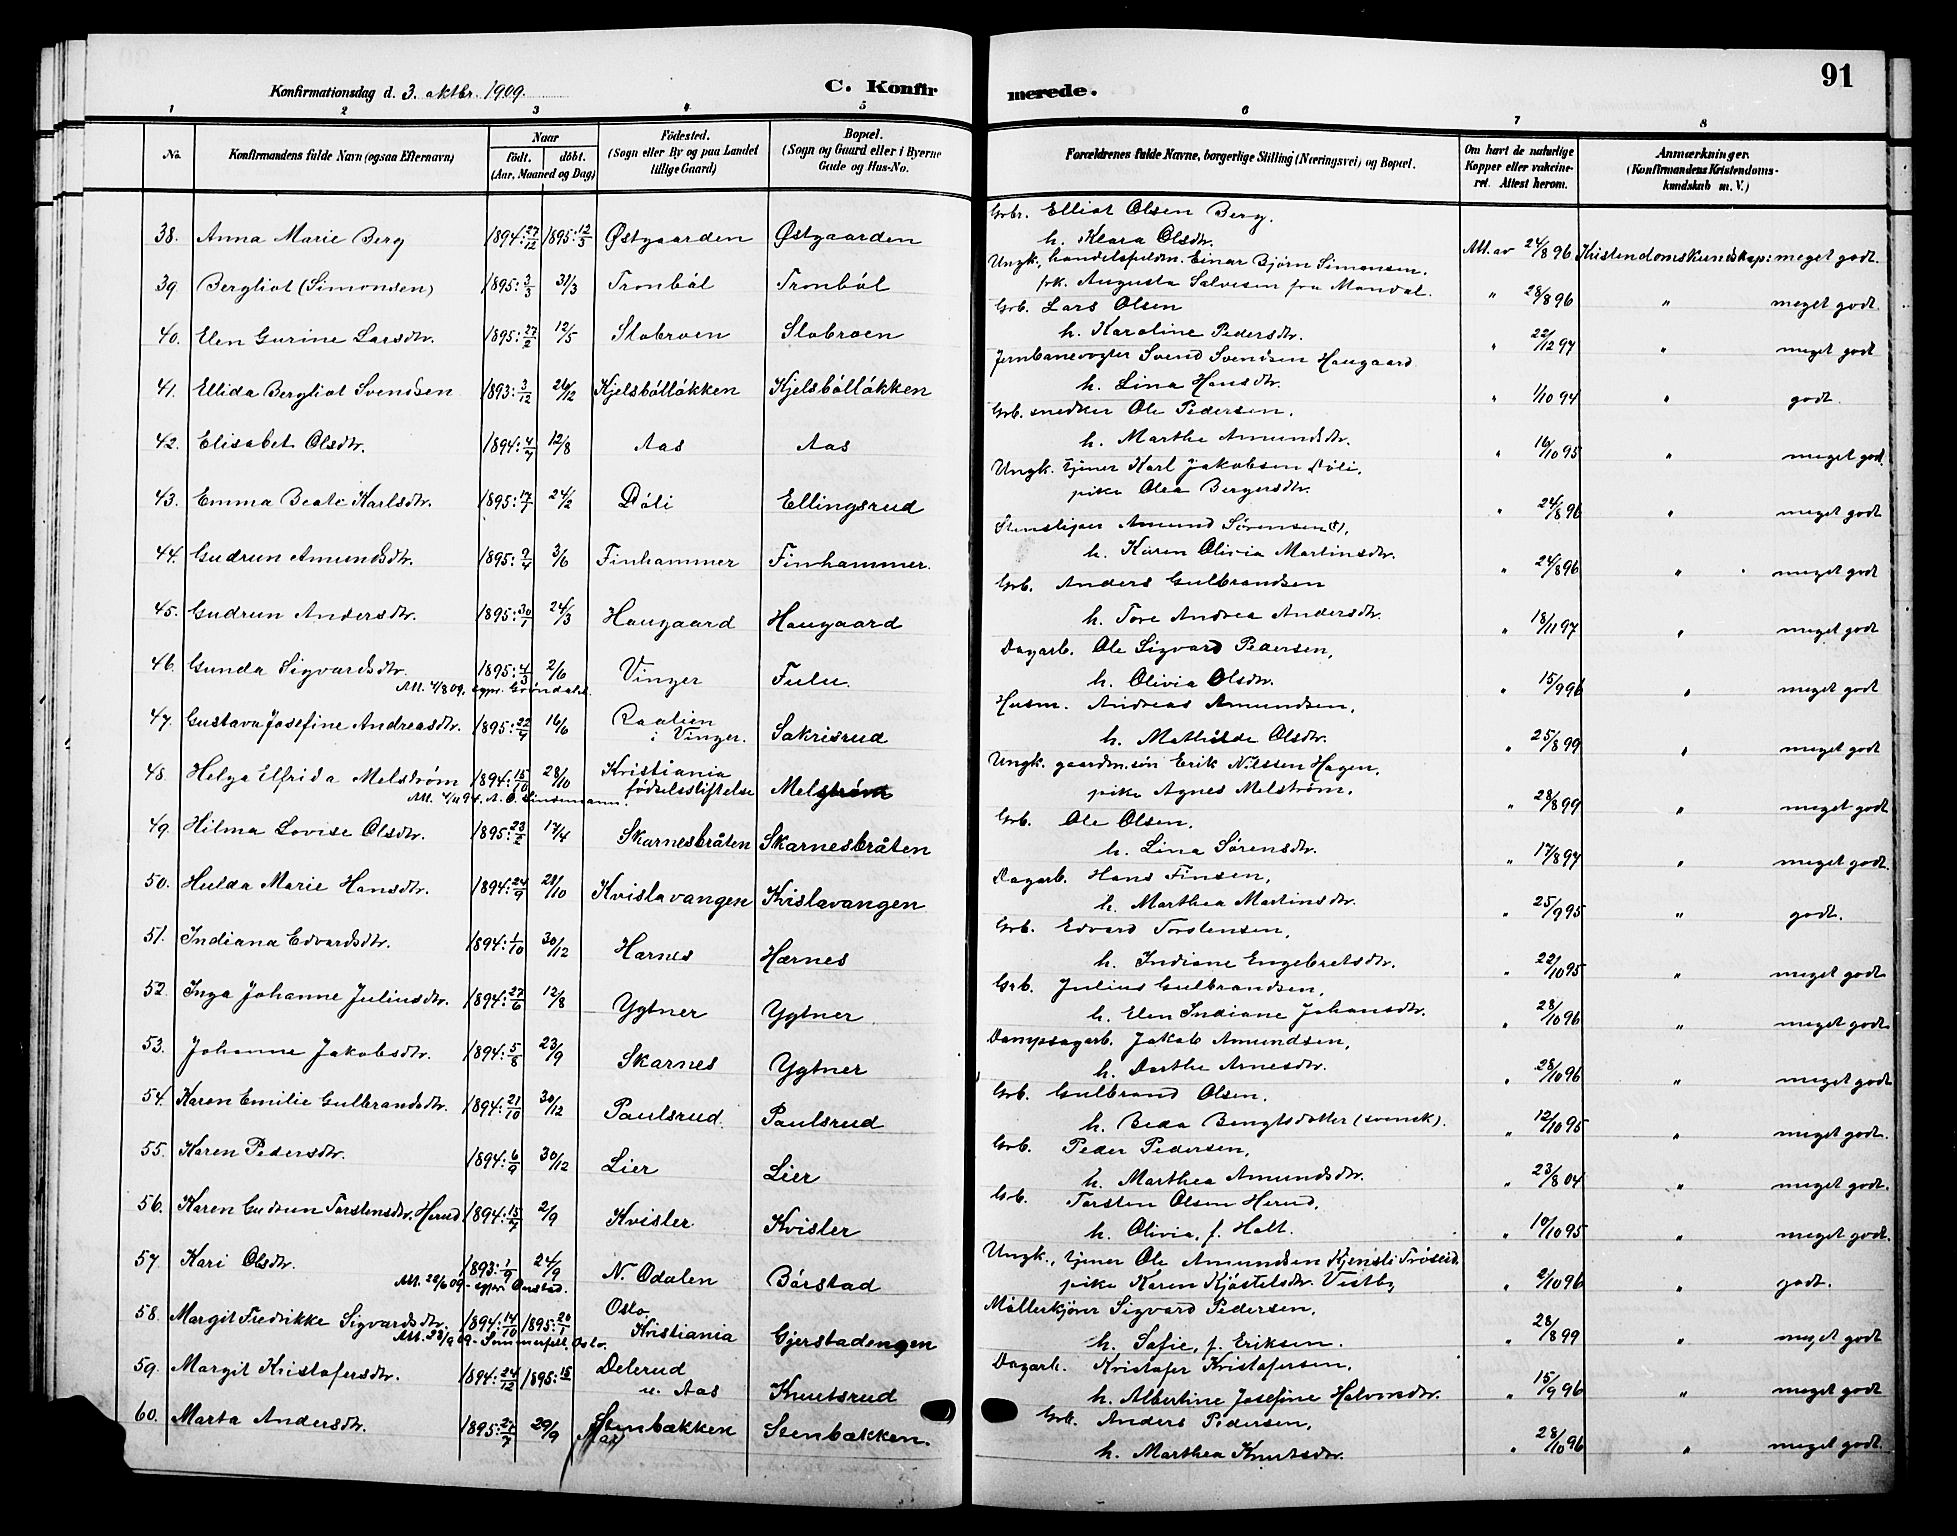 Konfirmationsdag d. 3. oktbr. 1909.
C. Konfirmerede.
91
1 2 3 4 5 6 7 8
No.
Konfirmandens fulde Navn (ogsaa Efternavn)
Naar
født. døbt.
(Aar, Maaned og Dag)
Fødested.
(Sogn eller By og paa Landet tillige Gaard)
Bopæl.
(Sogn og Gaard eller i Byerne Gade og Hus-No.
Forældrenes fulde Navne, borgerlige Stilling (Næringsvei) og Bopæl.
Om havt de naturlige Kopper eller vakcineret. Attest herom.
Anmærkninger.
(Konfirmandens Kristendomskundskab m. V.)
38. Anna Marie Berg 1894: 27/12 1895: 12/5 Østgaarden Østgaarden Grbr. Elliot Olsen Berg. h. Klara Olsdtr. Att. av 24/8 96 Kristendomskundskap: meget godt.
39 Bergliot (Simonsen) 1895: 3/3 31/3 Tronbøl Tronbøl Ungk., handelsfuldm. Einar Bjørn Simonsen. frk. Augusta Salvesen fra Mandal. " 28/8 96 " meget godt.
40. Elen Gurine Larsdtr. 1895: 27/2 12/5 Slobroen Slobroen Grb. Lars Olsen h. Karoline Pedersdtr. " 22/12 97 " meget godt
41. Ellida Bergliot Svendsen 1893: 3/12 26/12 Kjelsbølløkken Kjelsbølløkken Jernbanevogter Svend Svendsen Haugaard h. Lina Hansdtr. " 1/10 94 " godt.
42. Elisabet Olsdtr. 1894: 4/7 12/8 Aas Aas Grb. snedker Ole Pedersen, h. Marthe Amundsdtr. " 16/10 95 " meget godt.
43. Emma Beate Karlsdtr. 1895: 17/7 24/2 Døli Ellingsrud Ungk. tjener Karl Jakobsen Døli, pike Olea Bergersdtr. " 24/8 96 " meget godt
44. Gudrun Amundsdtr. 1895: 9/4 3/6 Finhammer Finhammer. Stensliper Amund Sørensen(†), h. Karen Olivia Martinsdtr. " 24/8 96 " meget godt
45. Gudrun Andersdtr. 1895: 30/1 24/3 Haugaard Haugaard Grb. Anders Gulbrandsen h. Tore Andrea Andersdtr. " 18/11 97 " meget godt
46. Gunda Sigvardsdtr. 1895: 4/3 2/6 Vinger Fulu. Dagarb. Ole Sigvard Pedersen, h. Olivia Olsdtr. " 15/9 96 " meget godt
Att. 4/8 09. Grøndahl.
47. Gustava Josefine Andreasdtr. 1895: 22/4 16/6 Raalien i Vinger. Sakrisrud Husm. Andreas Amundsen, h. Mathilde Olsdtr. " 25/8 99 " meget godt
48. Helga Elfrida Melstrøm 1894: 15/10 28/10 Kristiania fødselsstiftelse Melstrøm Ungk. gaardm.søn Erik Nilssen Hagen, pike Agnes Melstrøm. " 28/8 99 " meget godt
49. Hilma Lovise Olsdtr. 1895: 23/2 17/4 Skarnesbråten Skarnesbråten Grb. Ole Olsen, h. Lina Sørensdtr. " 17/8 97 " meget godt.
50. Hulda Marie Hansdtr. 1894: 24/9 28/10 Kvislavangen Kvislavangen Dagarb. Hans Finsen, h. Marthea Martinsdtr. " 25/9 95 " godt.
51. Indiana Edvardsdtr. 1894: 1/10 30/12 Harnes Hærnes Grb. Edvard Torstensen, h. Indiane Engebretsdtr. " 22/10 95 " meget godt
52. Inga Johanne Juliusdtr. 1894: 27/6 12/8 Ygtner Ygtner Grb. Julius Gulbrandsen, h. Elen Indiane Johansdtr. " 28/10 96 " meget godt
53. Johanne Jakobsdtr. 1894: 5/8 23/9 Skarnes Ygtner Dampsagarb. Jakob Amundsen, h. Dorthe Arnesdtr. " 28/10 96 " meget godt
54. Karen Emilie Gulbrandsdtr. 1894: 21/10 30/12 Paulsrud. Paulsrud Grb. Gulbrand Olsen. h. Beda Bengtsdotter (svensk). " 12/10 95 " meget godt.
55. Karen Pedersdtr. 1894: 6/9 30/12 Lier Lier Grb. Peder Pedersen, h. Marthea Amundsdtr. " 23/8 04 " meget godt.
56. Karen Gudrun Torstensdtr. Herud 1894: 15/7 2/9 Kvisler Kvisler Grb. Torsten Olsen Herud, h. Olivia, f. Holt. " 10/10 95 " meget godt.
57. Kari Olsdtr. 1893: 1/9 24/9 N. Odalen Børstad Ungk., tjener Ole Amundsen Kjensli Trøseid. pike Karen Kjøstelsdtr. Vestby " 2/10 96 " godt.
Att. 22/6 09 -
58. Margit Fredrikke Sigvardsdtr. 1894: 14/10 1895: 20/1 Oslo, Kristiania Gjerstadengen Møllerkjører Sigvard Pedersen, h. Sofie, f. Eriksen. " 28/8 99 " meget godt
Att. 23/9 09 - Sommerfelt, Oslo.
59. Margit Kristofersdtr. 1894: 24/12 1895: Delerud u. Aas Knutsrud Dagarb. Kristofer Kristofersen, h. Albertine Josefine Halvorsdtr. " 15/9 96 " meget godt
60. Marta Andersdtr. 1895: 27/7 29/9 Stenbækken Stenbækken. Grb. Anders Pedersen, h. Marthea Knutsdtr. " 28/10 96 " meget godt.